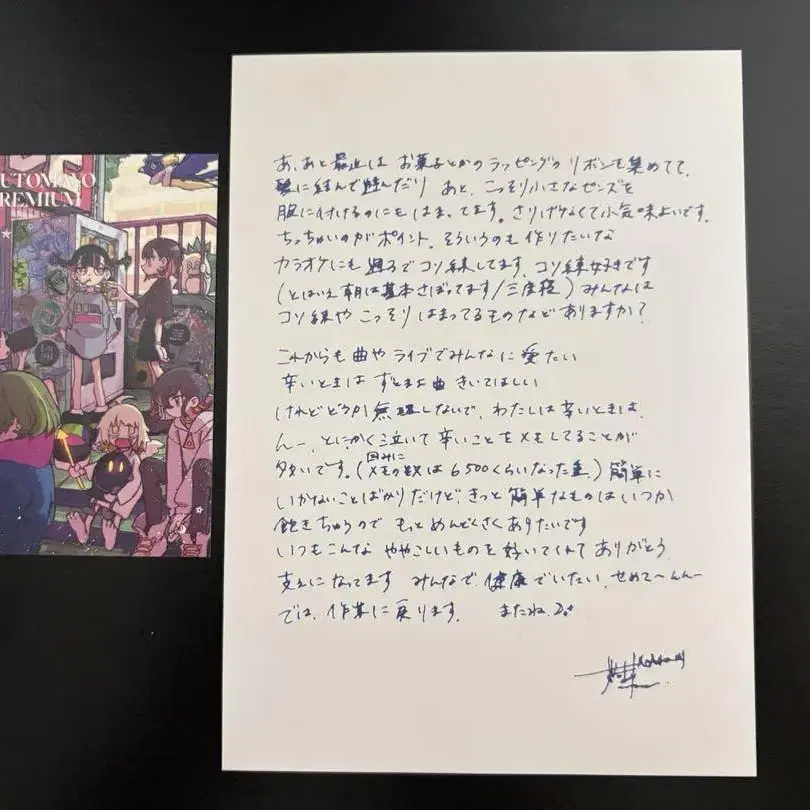 UTOMAYO
REMIUM
あ、あと最近は お菓子とかの ラッピングの リボンを集めてて、
髪に結んで遊んだり あと、こっそり小さなピンズを
服に付けるのにもはまってます。さりげなくて小気味よいです。
ちっちゃいのがポイント。そういうのも 作りたいな
カラオケにも 通ってコソ練してます、コソ練好きです
(とはいえ朝は基本さぼってます/三度寝) みんなは
コソ練や こっそり はまってるものなど ありますか?
これからも 曲や ライブでみんなに 会いたい
辛いときは ずとまよ曲 きいてほしい
けれどどうか無理しないで、わたしは辛いときは、
んー、とにかく泣いて 辛いことを メモしてることが
多いです。(因みにメモの数は 6500くらいなった) 簡単に
いかないことばかりだけど、きっと 簡単なものは いつか
飽きちゃうので もっと めんどくさくありたいです
いつもこんな ややこしいものを 好いてくれて ありがとう
支えになってます みんなで 健康でいたい、せめて〜んんー
では、作業に戻ります。 またね